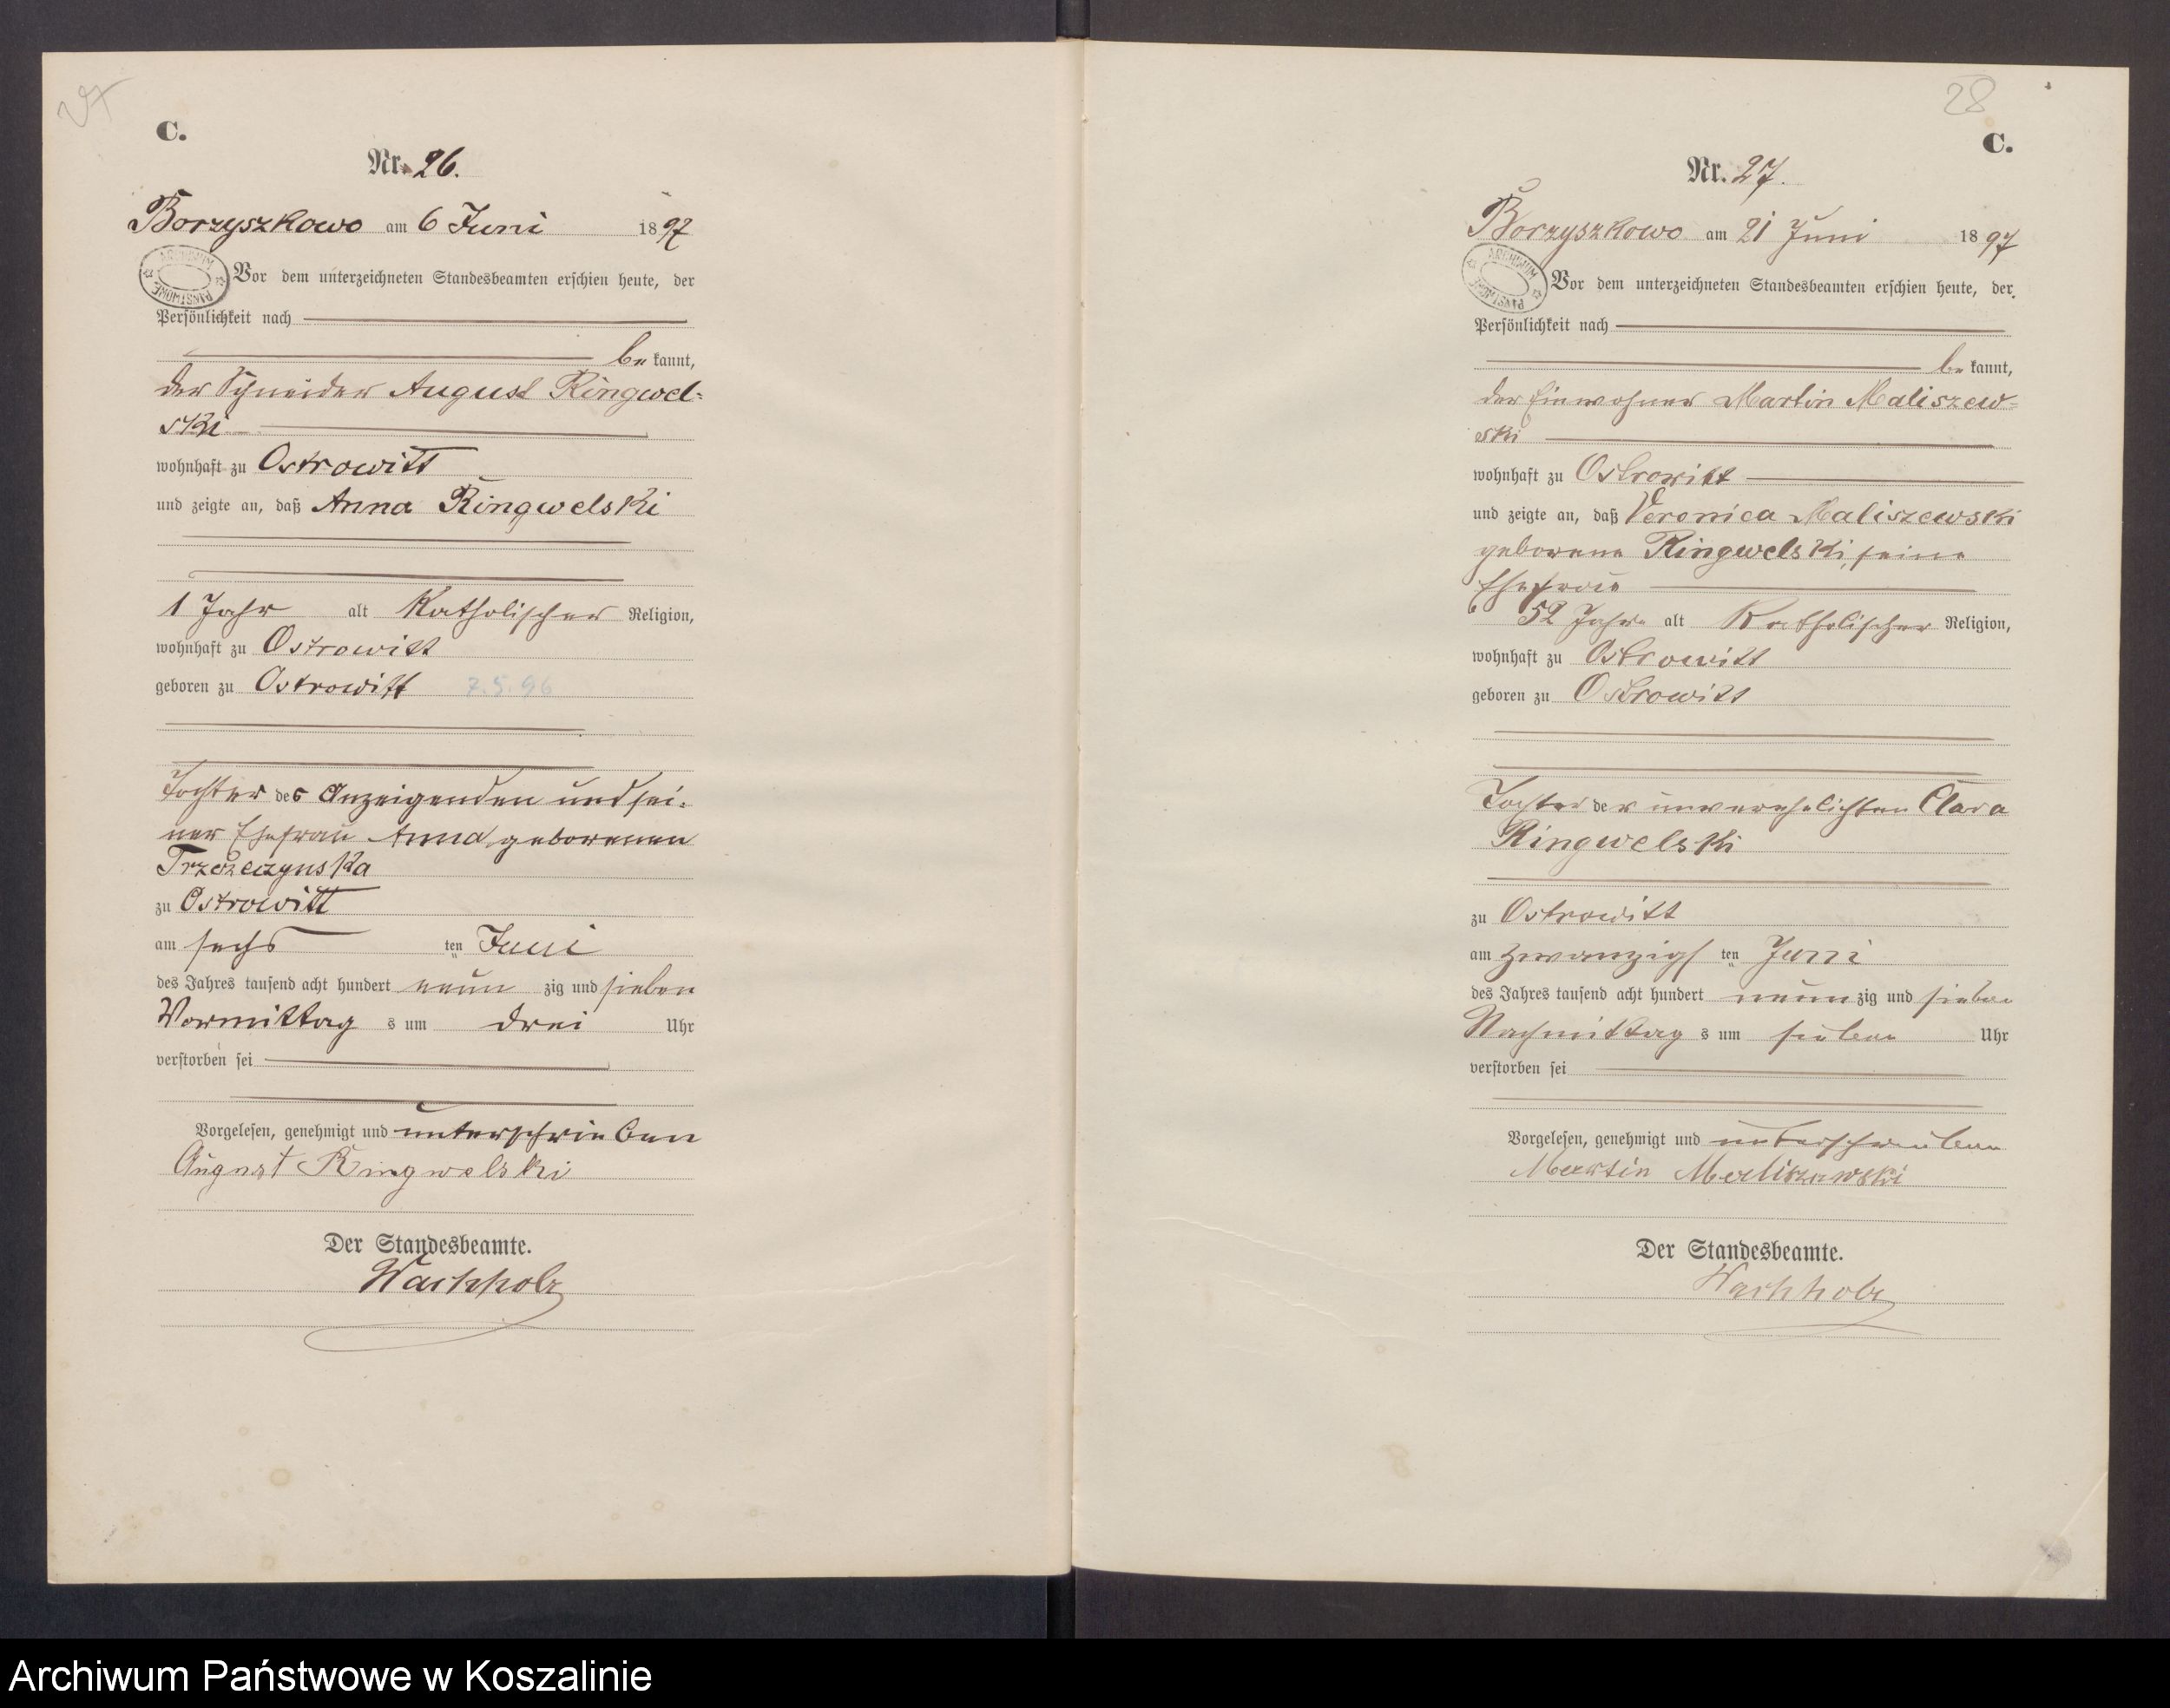 27
C.
Nr. 26.
Borzyszkowo am 6 Juni 1897
ARCHIWUM PAŃSTWOWE
Vor dem unterzeichneten Standesbeamten erschien heute, der
Persönlichkeit nach
be kannt,
der Schneider August Ringwel-
ski
wohnhaft zu Ostrowitt
und zeigte an, daß Anna Ringwelski
1 Jahr alt Katholischer Religion,
wohnhaft zu Ostrowitt
geboren zu Ostrowitt 7.5.96
Tochter des Anzeigenden und sei-
ner Ehefrau Anna geborenen
zu Ostrowitt
am sechs ten Juni
des Jahres tausend acht hundert neun zig und sieben
Vormittag s um drei Uhr
verstorben sei
Vorgelesen, genehmigt und unterschrieben
August Ringwelski
Der Standesbeamte.
Wachholz
28
C.
Nr. 27.
Borzyszkowo am 21 Juni 1897
ARCHIWUM PAŃSTWOWE
Vor dem unterzeichneten Standesbeamten erschien heute, der
Persönlichkeit nach
be kannt,
der Einwohner Martin Maliszew-
ski
wohnhaft zu Ostrowitt
und zeigte an, daß Veronica Maliszewski
geborene Ringwelski, seine
Ehefrau
52 Jahre alt Katholischer Religion,
wohnhaft zu Ostrowitt
geboren zu Ostrowitt
Tochter der unverehelichten Clara
Ringwelski
zu Ostrowitt
am zwanzigs ten Juni
des Jahres tausend acht hundert neun zig und sieben
Nachmittag s um sieben Uhr
verstorben sei
Vorgelesen, genehmigt und unterschrieben
Martin Maliszewski
Der Standesbeamte.
Wachholz
Archiwum Państwowe w Koszalinie